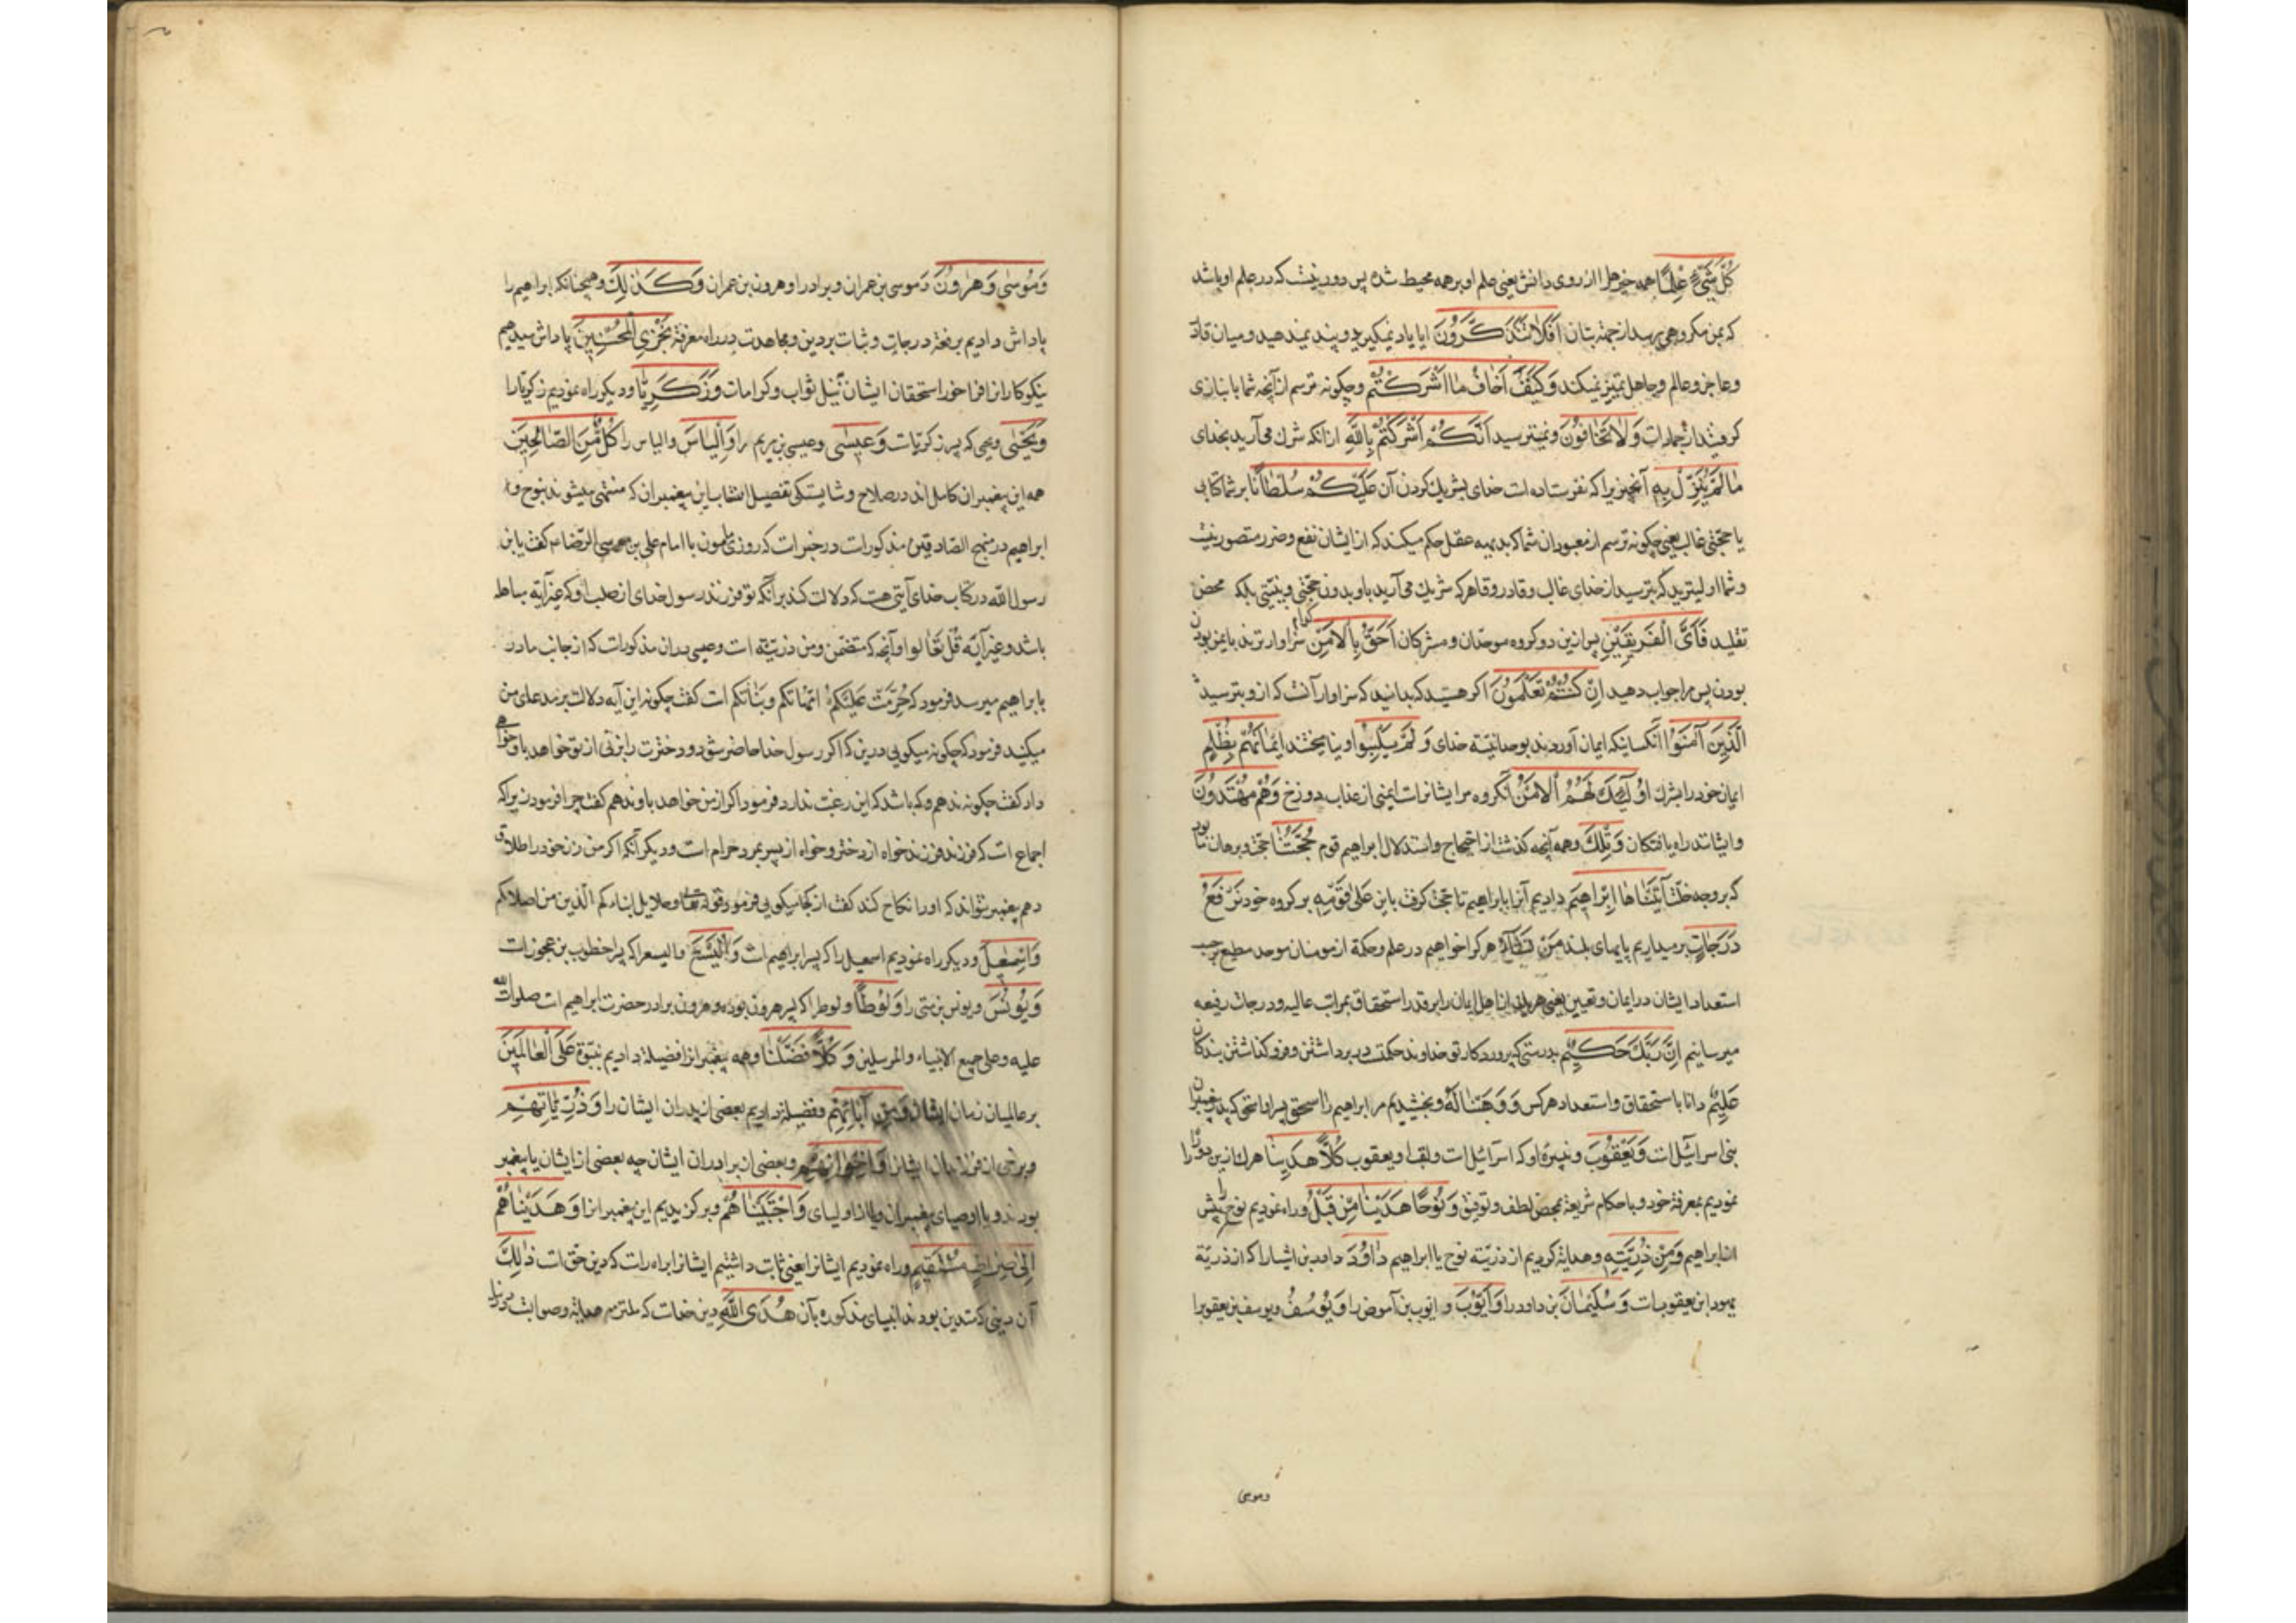 كُلَّ شَيْءٍ عِلْمًا همه چیزها را از روی دانش یعنی علم او بر همه محیط شده پس دور نیست که در علم او باشد
که بمن مکروهی برسد از جهة بتان أَفَلَا تَتَذَكَّرُونَ ایا یاد نمیکیرید و پند نمیدهید و میان قادر
و عاجز و عالم و جاهل تمییز نمیکنید وَكَيْفَ أَخَافُ مَا أَشْرَكْتُمْ و چکونه ترسم از آنچه شما بانبازی
کرفتید از جمادات وَلَا تَخَافُونَ و نمیترسید أَنَّكُمْ أَشْرَكْتُمْ بِاللَّهِ از انکه شرك می آرید بخدای
مَا لَمْ يُنَزِّلْ بِهِ آنچیزیرا که نفرستاده است خدای بشریك کردن آن عَلَيْكُمْ سُلْطَانًا بر شما کتابی
یا حجّتی غالب یعنی چکونه ترسم از معبودان شما که بدیهه عقل حکم میکند که از ایشان نفع و ضرر متصور نیست
و شما اولیترید که بترسید از خدای غالب و قادر و قاهر که شریك می آرید باو بدون حجّتی و بیّنتی بلکه محض
تقلید فَأَيُّ الْفَرِيقَيْنِ پس ازین دو کروه موحدان و مشرکان کدام أَحَقُّ بِالْأَمْنِ سزاوارترند بایمن بودن
بودن پس مرا جواب دهید إِنْ كُنْتُمْ تَعْلَمُونَ اکر هستید که بدانید که سزاوار آنست که ازو بترسید
الَّذِينَ آمَنُوا آنکسانیکه ایمان آوردند بوحدانیّة خدای وَلَمْ يَلْبِسُوا و نیامیختند إِيمَانَهُمْ بِظُلْمٍ
ایمان خود را بشرك أُولَٰئِكَ لَهُمُ الْأَمْنُ آنکروه مر ایشانراست ایمنی از عذاب دوزخ وَهُمْ مُهْتَدُونَ
و ایشانند راه یافتکان وَتِلْكَ و همه آنچه کذشت از احتجاج و استدلال ابراهیم قوم حُجَّتُنَا حجّت و برهان ما بود
که بر وجه حقّست آتَيْنَاهَا إِبْرَاهِيمَ دادیم آنرا بابراهیم تا حجّت کرفت باین عَلَىٰ قَوْمِهِ بر کروه خود نَرْفَعُ
دَرَجَاتٍ برمیداریم پایهای بلند مَنْ نَشَاءُ هر کرا خواهیم در علم و حکمة از مومنان موحد مطیع بر حسب
استعداد ایشان در ایمان و تعیین یعنی هر یك از اهل ایمان را بر قدر استحقاق بمراتب عالیه و درجات رفیعه
میرسانیم إِنَّ رَبَّكَ حَكِيمٌ بدرستی که پروردکار تو خداوند حکمتست در برداشتن و فرو کذاشتن بندکان
عَلِيمٌ دانا باستحقاق و استعداد هر کس وَوَهَبْنَا لَهُ و بخشیدیم مر ابراهیم را إِسْحَاقَ پسر او اسحق که پدر پیغمبران
بنی اسرائیل است وَيَعْقُوبَ و نبیره او که اسرآئیل است و لقب او یعقوب كُلًّا هَدَيْنَا هر یك ازین دو را راه
نمودیم بمعرفة خود و باحکام شریعة بمحض لطف و توفیق وَنُوحًا هَدَيْنَا مِنْ قَبْلُ و راه نمودیم نوح را پیش
از ابراهیم وَمِنْ ذُرِّيَّتِهِ و هدایة کردیم از ذریّة نوح یا ابراهیم دَاوُودَ داود بن ایشا را که از ذریّة
یهودا بن یعقوبست وَسُلَيْمَانَ بن داود را وَأَيُّوبَ و ایّوب بن آموص را وَيُوسُفَ و یوسف بن یعقوب را
و موسی
وَمُوسَىٰ وَهَارُونَ و موسی بن عمران و برادر او هرون بن عمران وَكَذَٰلِكَ و همچنانکه ابراهیم را
پاداش دادیم برفعة درجات و ثبات بر دین و مجاهدت در راه معرفة نَجْزِي الْمُحْسِنِينَ پاداش میدهیم
نیکوکارانرا فراخور استحقاق ایشان نیل ثواب و کرامات وَزَكَرِيَّا و دیکر راه نمودیم زکریّا را
وَيَحْيَىٰ و یحیی که پسر زکریّاست وَعِيسَىٰ و عیسی بن مریم را وَإِلْيَاسَ و الیاس را كُلٌّ مِنَ الصَّالِحِينَ
همه این پیغمبران کامل اند در صلاح و شایستکی تفصیل انتساب این پیغمبران که منتهی میشوند بنوح و
ابراهیم در منهج الصادقین مذکورات در خبرات که روزی مامون با امام علی بن موسی الرّضا ع کفت یا بن
رسول اللّه در کتاب خدای آیتی هست که دلالت کند بر آنکه تو فرزند رسول خدای از صلب او که غیر آیة مباهله
باشد و غیر آیة قُلْ تَعَالَوْا و آنچه که متضمن و من ذریّته است و عیسی بدان مذکورات که از جانب مادر
بابراهیم میرسد فرمود که حُرِّمَتْ عَلَيْكُمْ امّهاتکم و بناتکم است کفت چکونه این آیه دلالت بر مدعای من
میکند فرمود که چکونه میکویی درین که اکر رسول خدا حاضر شود و دخترت را بزنی از تو خواهد باو خواهی
داد کفت چکونه ندهم و که باشد که این رغبت ندارد فرمود اکر از من خواهد باو ندهم کفت چرا فرمود زیراکه
اجماع است که فرزند فرزند خواه از دختر و خواه از پسر بمرد حرام است و دیکر آنکه اکر من زن خود را طلاق
دهم پیغمبر نتواند که او را نکاح کند کفت از کجا میکویی فرمود قوله تعالی و حلایل ابناءکم الّذین من اصلابکم
وَإِسْمَاعِيلَ و دیکر راه نمودیم اسمعیل را که پسر ابراهیم است وَالْيَسَعَ و الیسع را که پسر اخطوب بن عجوزات
وَيُونُسَ و یونس بن متی را وَلُوطًا و لوط را که پسر هرون بود و هرون برادر حضرت ابراهیم است صلوات اللّه
علیه و علی جمیع الانبیاء و المرسلین وَكُلًّا فَضَّلْنَا و همه پیغمبرانرا فضیلة دادیم بنبوّة عَلَى الْعَالَمِينَ
بر عالمیان زمان ایشان وَمِنْ آبَائِهِمْ و فضیلة دادیم بعضی از پدران ایشان را وَذُرِّيَّاتِهِمْ
و برخی از فرزندان ایشانرا وَإِخْوَانِهِمْ و بعضی از برادران ایشان چه بعضی از ایشان یا پیغمبر
بودند و یا اوصیای پیغمبران و یا از اولیای وَاجْتَبَيْنَاهُمْ و برکزیدیم این پیغمبرانرا وَهَدَيْنَاهُمْ
إِلَىٰ صِرَاطٍ مُسْتَقِيمٍ و راه نمودیم ایشانرا یعنی ثابت داشتیم ایشانرا براه راست که دین حق است ذَٰلِكَ
آن دینی که متدین بودند انبیای مذکوره بآن هُدَى اللَّهِ دین خداست که ملتزم هدایة و صوابست